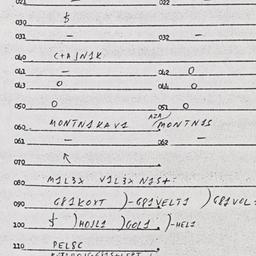 021 — 022
030 $
031 — 032 —
040 C+AJN1K
041 — 042 0
043 0 044 0
050 0 051 0
060 MONTN1KAV1 AZA MONTN1S
061 — 062 —
070
080 M1L3X V1L3X N1S+:
090 GR1KOYT )-GR1VELT1 )GR1VOL
100 $ )HOJL1 )GOL1 )-HEL1
110 PELSC